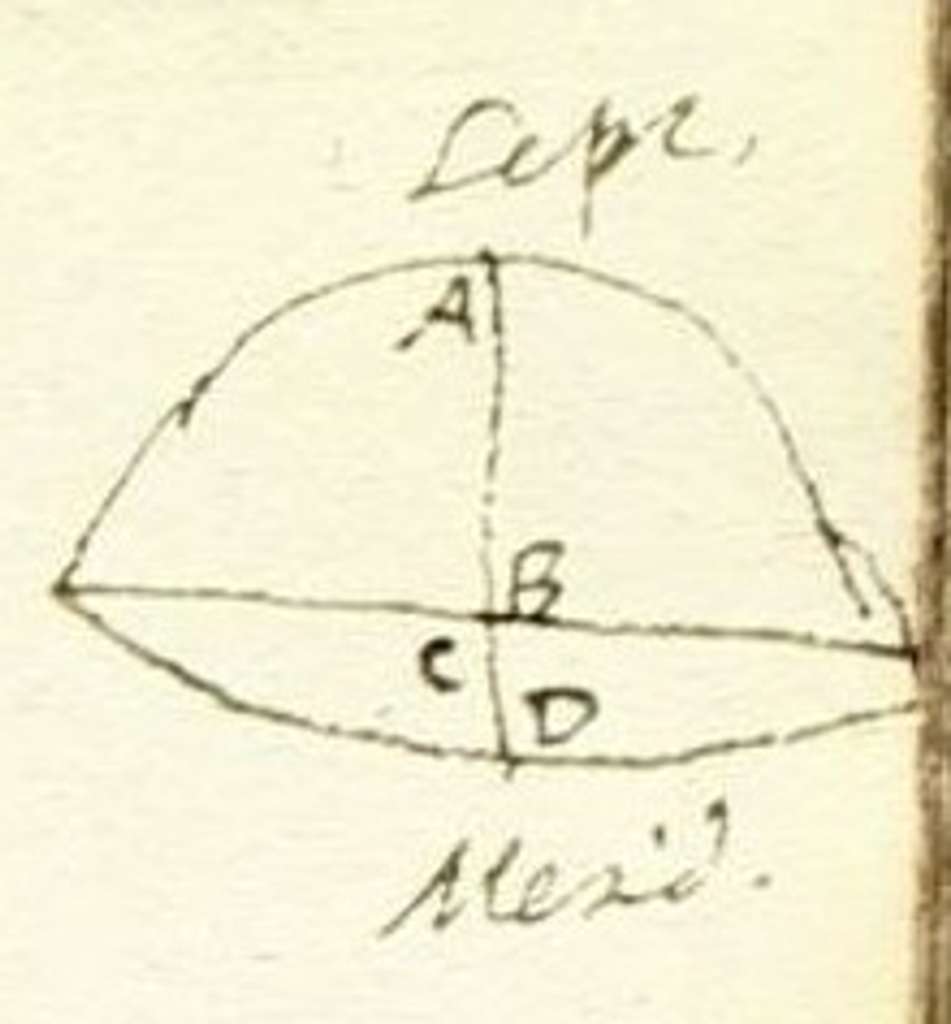 Sept.
A
B
C
D
Merid.